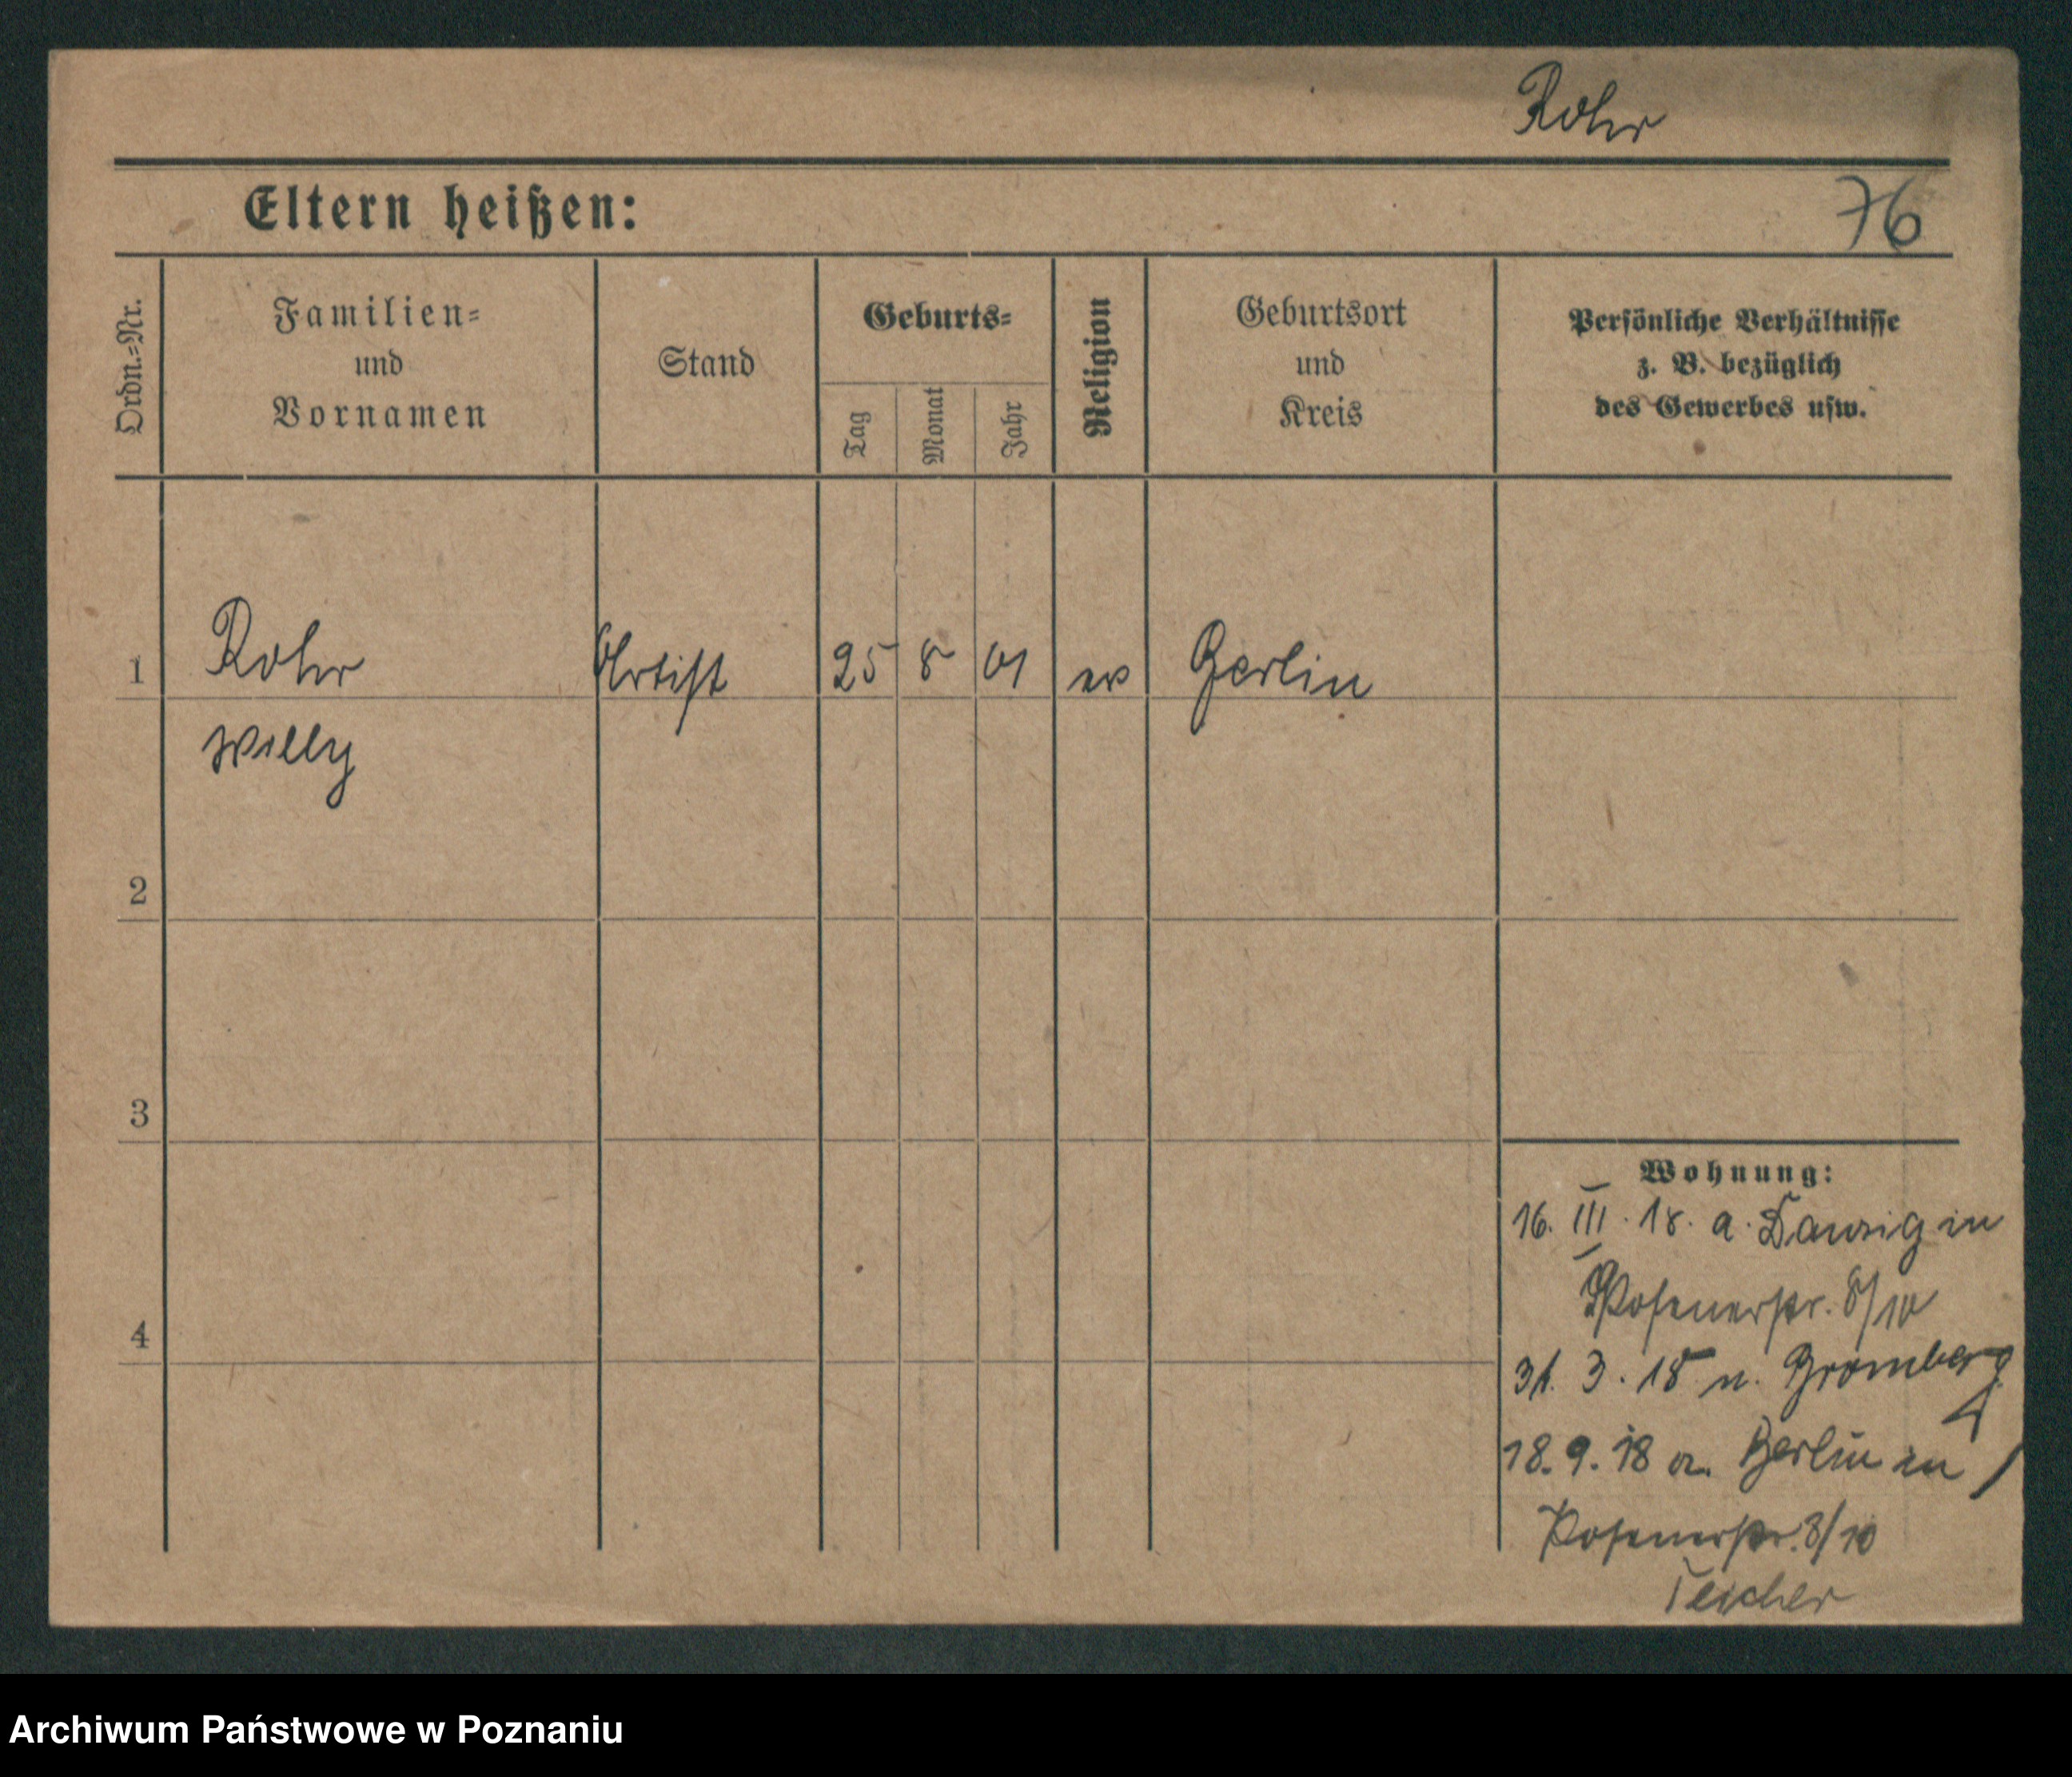 Rohr
Eltern heißen:
76
Ordn.=Nr.
Familien=
und
Vornamen
Stand
Geburts=
Tag
Monat
Jahr
Religion
Geburtsort
und
Kreis
Persönliche Verhältnisse
z. B. bezüglich
des Gewerbes usw.
1 Rohr Artist 25 8 01 ev Berlin
Willy
2
3
4
Wohnung:
16. III. 18. a. Danzig in
Posenerstr. 8/10
31. 3. 18 n. Bromberg
18. 9. 18 a. Berlin in
Posenerstr. 8/10
Teicher
Archiwum Państwowe w Poznaniu